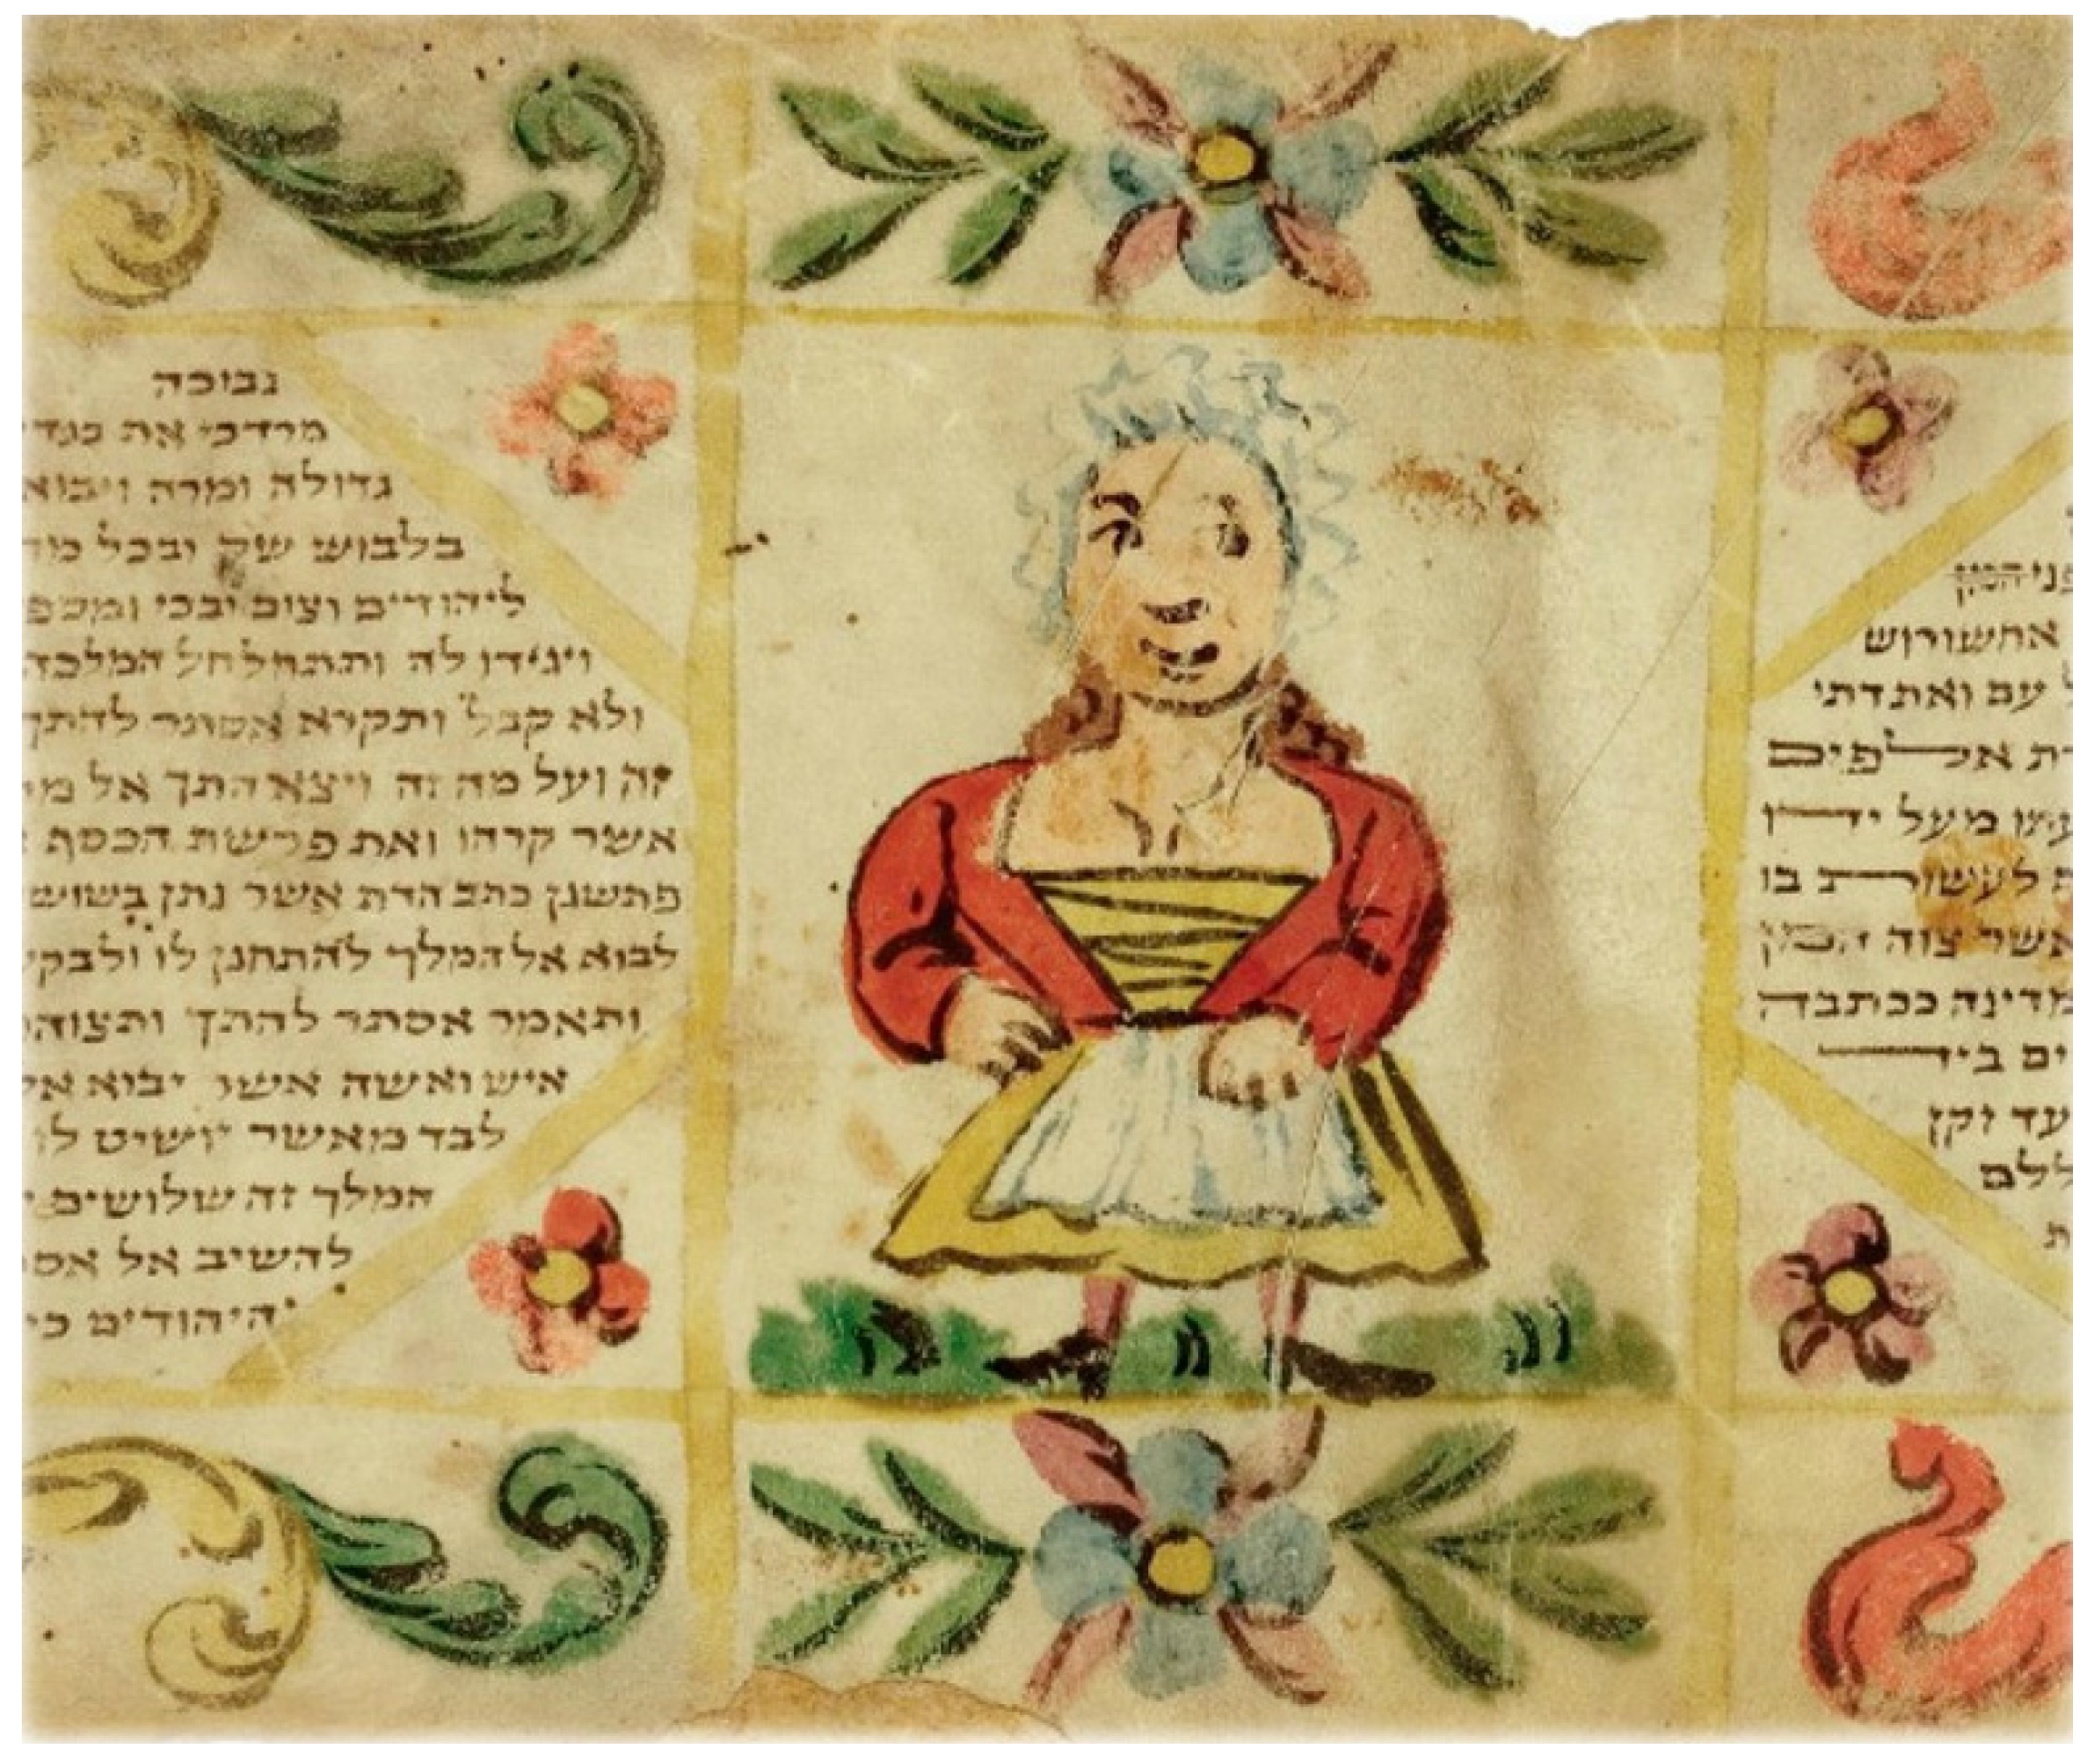 פני המן
אחשורוש
ל עם ואת דתי
רת אלפים
מעל ידו
ה לעשות בו
אשר צוה המן
מדינה ככתבה
ים ביד
עד זקן
ללם
ת
נבוכה
מרדכי את בגדי
גדולה ומרה ויבוא
בלבוש שק ובכל מד
ליהודים וצום ובכי ומספ
ויגידו לה ותתחלחל המלכה
ולא קבל ותקרא אסתר להתך
זה ועל מה זה ויצא התך אל מר
אשר קרהו ואת פרשת הכסף
פתשגן כתב הדת אשר נתן בשוש
לבוא אל המלך להתחנן לו ולבק
ותאמר אסתר להתך ותצוה
איש ואשה אשר יבוא אל
לבד מאשר יושיט לו
המלך זה שלושים י
להשיב אל אס
היהודים כי